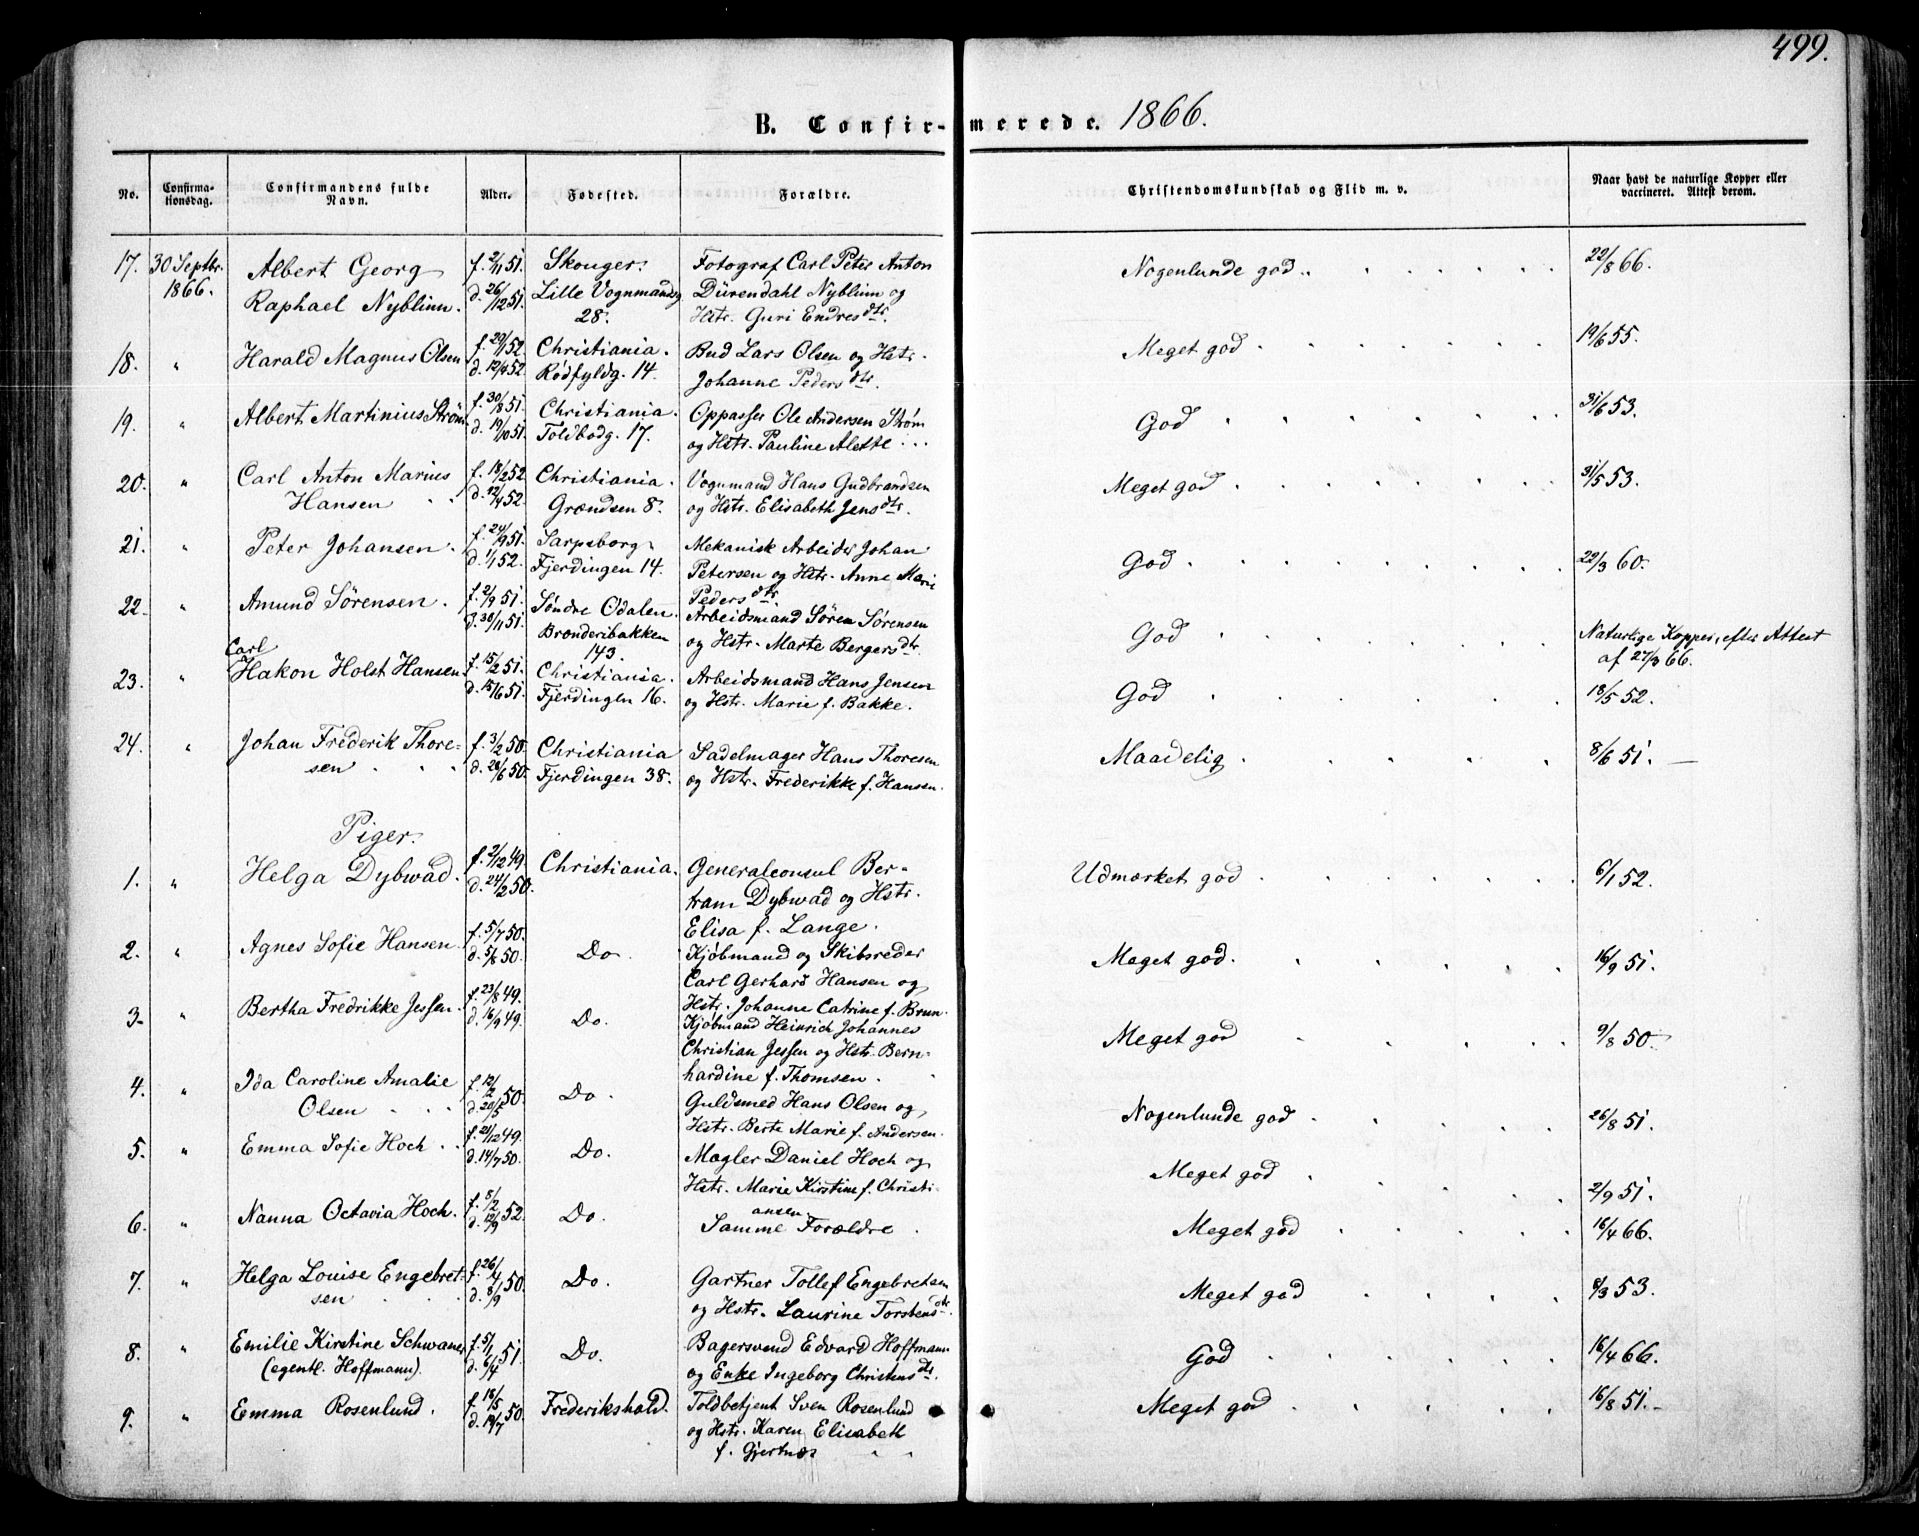 499.
B. Confirmerede. 1866.
No. Confirmationsdag. Confirmandens fulde Navn. Alder. Fødested. Forældre. Christendomskundskab og Flid m. v. Naar havt de naturlige Kopper eller vaccineret. Attest derom.
17. 30 Septbr. 1866. Albert Georg f. 2/11 51. Skouger. Fotograf Carl Peter Anton Nogenlunde god. 22/8 66.
Raphael Nyblinn. d. 26/12 51. Lille Vognmandsg. Dürendahl Nyblinn og
28. Hstr. Guri Endresdtr.
18. " Harald Magnus Olsen f. 29/1 52. Christiania. Bud Lars Olsen og Hstr. Meget god 19/6 55.
d. 12/4 52. Rødfyldg. 14. Johanne Pedersdtr.
19. " Albert Martinius Strøm f. 30/8 51. Christiania. Oppasser Ole Andersen Strøm God 31/6 53.
d. 19/10 51. Toldbodg. 17. og Hstr. Pauline Alette
20. " Carl Anton Marius f. 18/2 52. Christiania. Vognmand Hans Gudbrandsen Meget god 31/5 53.
Hansen d. 12/4 52. Grændsen 8. og Hstr. Elisabeth Jensdtr.
21. " Peter Johansen. f. 24/9 51. Sarpsborg. Mekanisk Arbeider Johan God 22/3 60.
d. 1/1 52. Fjerdingen 14. Petersen og Hstr. Anne Marie
Pedersdtr.
22. " Amund Sørensen. f. 2/9 51. Søndre Odalen. Arbeidsmand Søren Sørensen God Naturlige Kopper, efter Attest
d. 30/11 51. Brønderibakken og Hstr. Marte Bergersdtr. af 27/3 66.
143.
Carl
23. " Hakon Holst Hansen f. 15/2 51. Christiania. Arbeidsmand Hans Jensen God 18/5 52.
d. 15/6 51. Fjerdingen 16. og Hstr. Marie f. Bakke.
24. " Johan Frederik Thore- f. 3/2 50. Christiania Sadelmager Hans Thoresen Maadelig 8/6 51.
sen d. 28/6 50. Fjerdingen 38. og Hstr. Frederikke f. Hansen.
Piger.
1. " Helga Dybwad. f. 2/12 49. Christiania. Generalconsul Ber- Udmærket god 6/1 52.
d. 24/2 50. tram Dybwad og Hstr.
Elisa f. Lange.
2. " Agnes Sofie Hansen f. 5/7 50. Do Kjøbmand og Skibsreder Meget god. 16/9 51.
d. 5/8 50. Carl Gerhard Hansen og
Hstr. Johanne Catrine f. Brun.
3. " Bertha Fredrikke Jessen. f. 23/8 49. Do. Kjøbmand Heinrich Johannes Meget god 9/8 50.
d. 16/9 49. Christian Jessen og Hstr. Bern-
hardine f. Thomsen.
4. " Ida Caroline Amalie f. 12/2 50. Do. Guldsmed Hans Olsen og Nogenlunde god 26/8 51.
Olsen d. 20/5 Hstr. Berte Marie f. Andersen.
5. " Emma Sofie Hoch f. 21/12 49. Do. Mægler Daniel Hoch og Meget god 2/9 51.
d. 14/7 50. Hstr. Marie Kirstine f. Christi-
ansen
6. " Nanna Octavia Hoch. f. 8/2 52. Do. Samme Forældre. Meget god 16/4 66.
d. 12/9
7. " Helga Louise Engebret- f. 26/4 50. Do. Gartner Tollef Engebretsen Meget god 8/3 53.
sen d. 8/9 og Hstr. Laurine Torstensdtr.
8. " Emilie Kirstine Schwane f. 5/1 51. Do. Bagersvend Edvard Hoffmann God 16/4 66.
(egentl. Hoffmann). d. 6/4 og Enke Ingeborg Christensdtr.
9. " Emma Rosenlund. f. 18/5 50. Frederikshald. Toldbetjent Sven Rosenlund Meget god 16/8 51.
d. 14/7 og Hstr. Karen Elisabeth
f. Gjertnæs